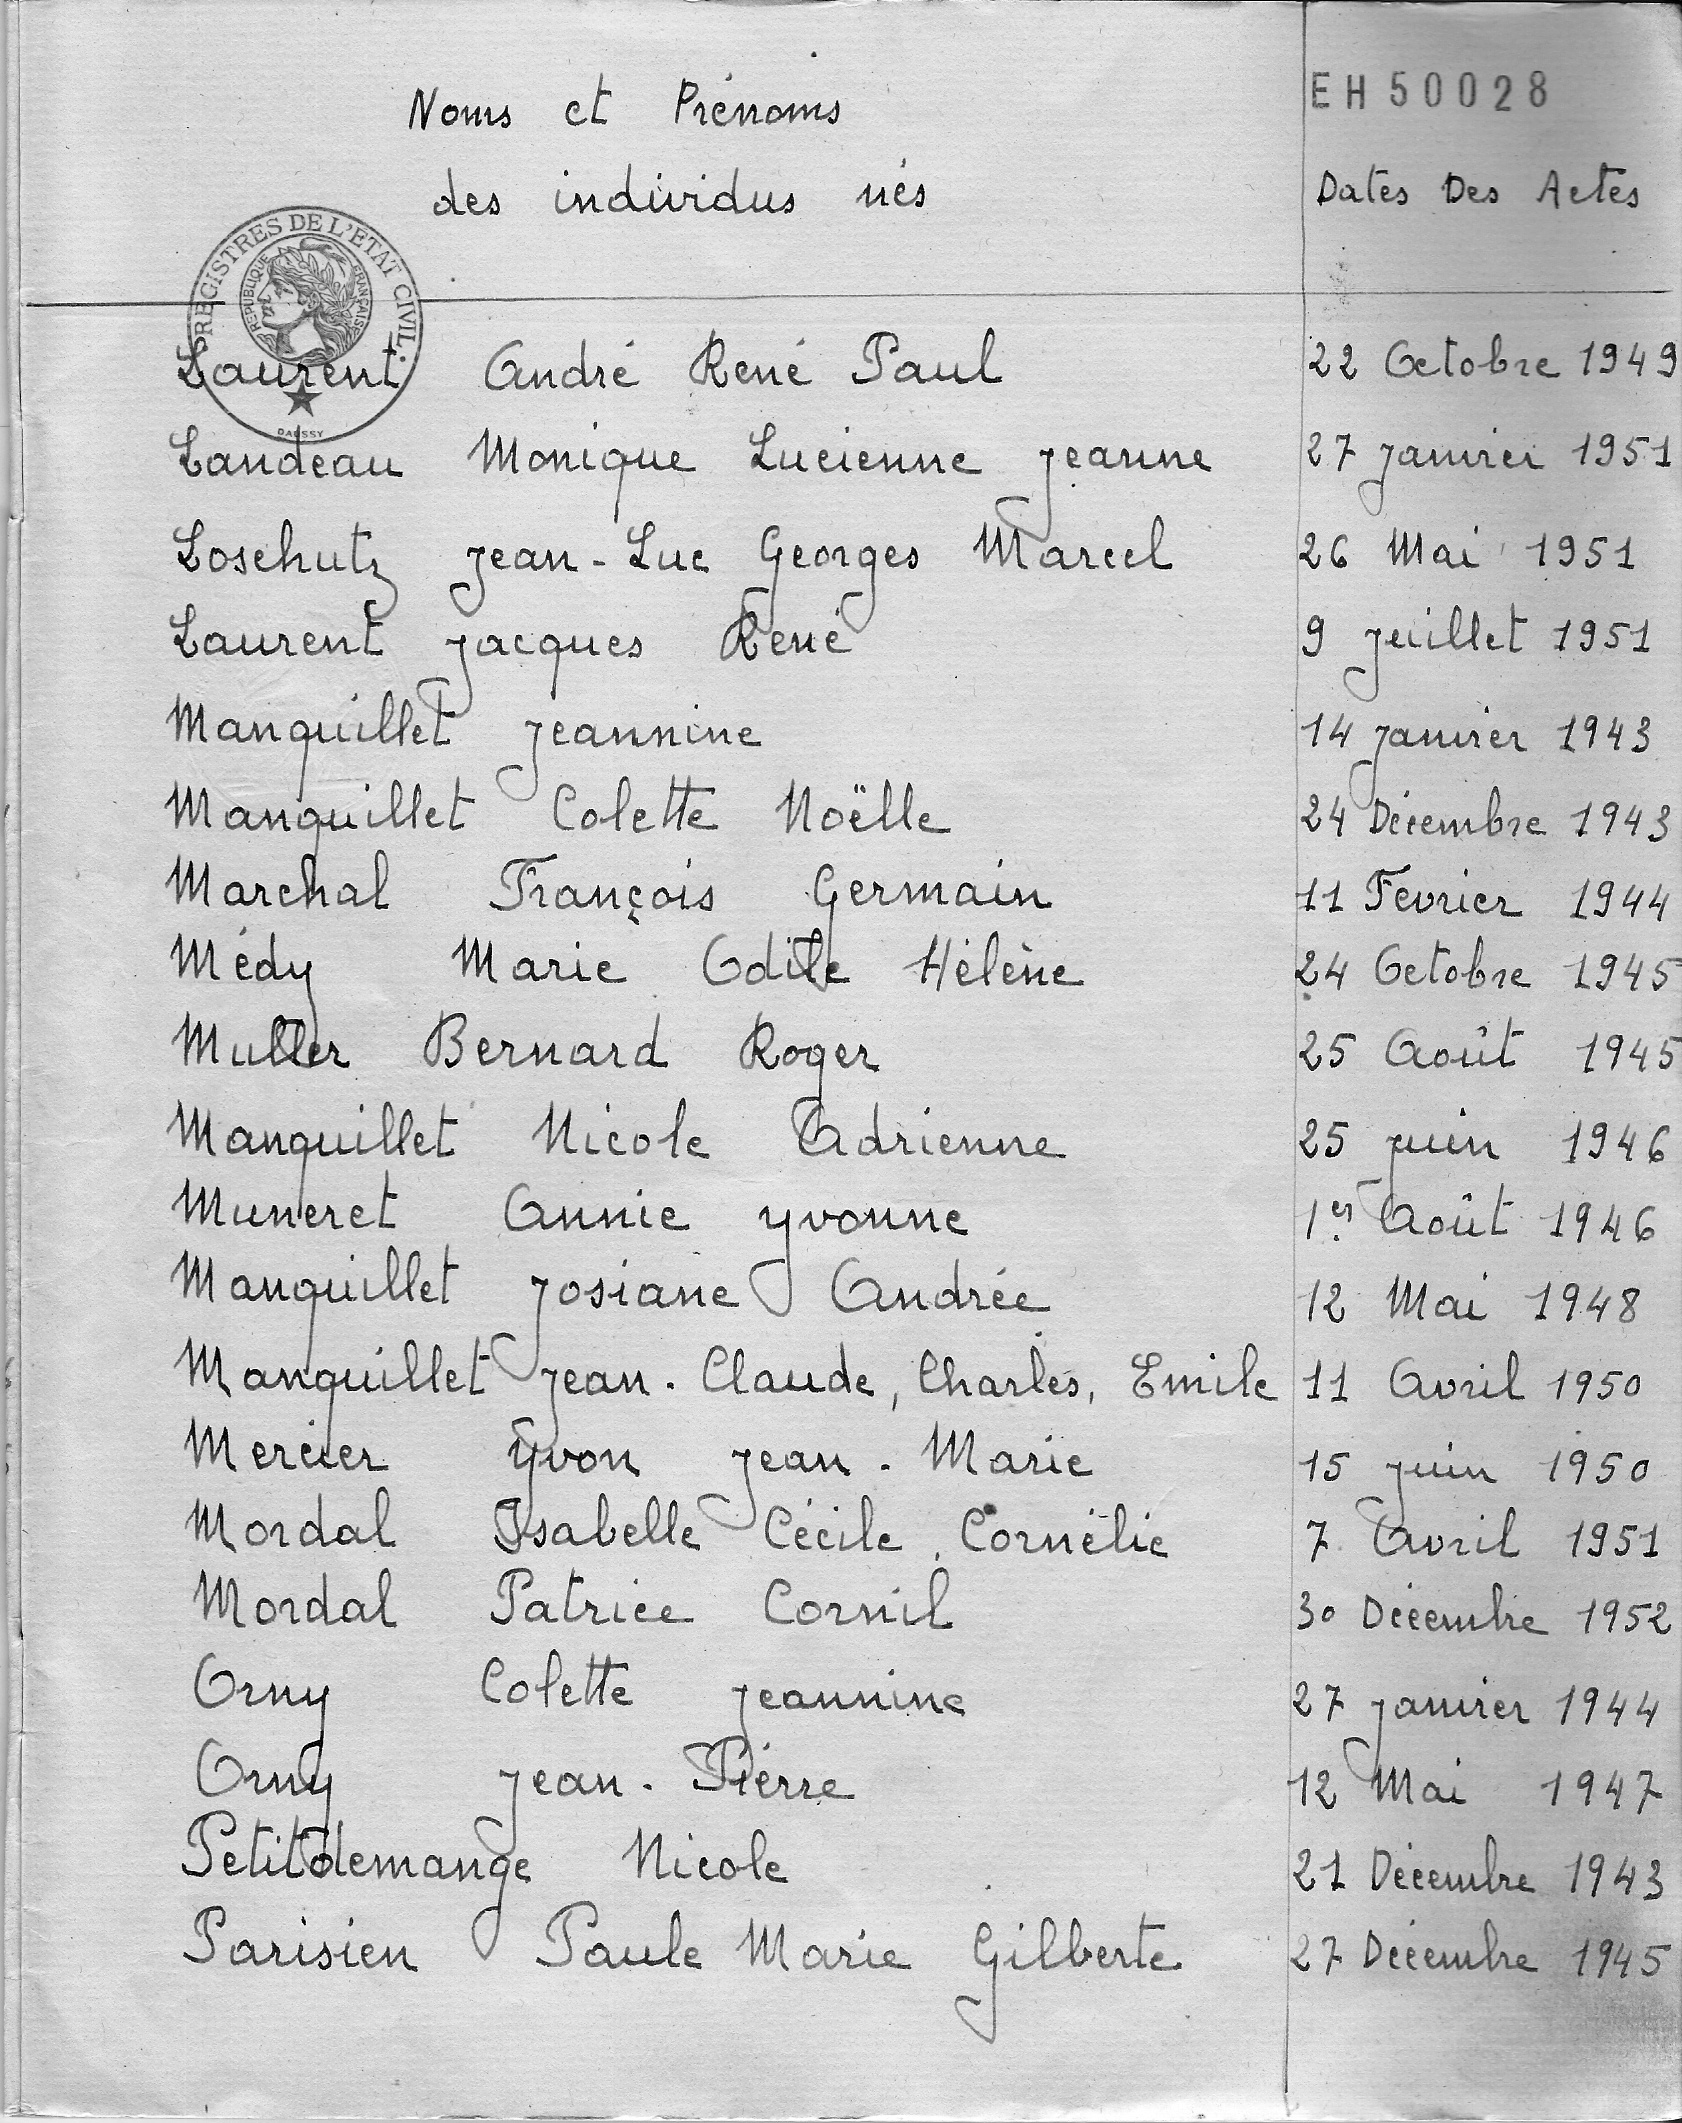 EH 50028
Noms et Prénoms
des individus nés
Dates Des Actes
REGISTRES DE L'ETAT CIVIL.
REPUBLIQUE FRANÇAISE
DAUSSY
Laurent André René Paul 22 Octobre 1949
Landeau Monique Lucienne Jeanne 27 Janvier 1951
Loschutz Jean-Luc Georges Marcel 26 Mai 1951
Laurent Jacques René 9 Juillet 1951
Manquillet Jeannine 14 Janvier 1943
Manquillet Colette Noëlle 24 Décembre 1943
Marchal François Germain 11 Fevrier 1944
Médy Marie Odile Hélène 24 Octobre 1945
Muller Bernard Roger 25 Août 1945
Manquillet Nicole Adrienne 25 Juin 1946
Muneret Annie Yvonne 1er Août 1946
Manquillet Josiane Andrée 12 Mai 1948
Manquillet Jean-Claude, Charles, Emile 11 Avril 1950
Mercier Yvon Jean-Marie 15 Juin 1950
Mordal Isabelle Cécile Cornélie 7 Avril 1951
Mordal Patrice Cornil 30 Décembre 1952
Orny Colette Jeannine 27 Janvier 1944
Orny Jean-Pierre 12 Mai 1947
Petitdemange Nicole 21 Décembre 1943
Parisien Paule Marie Gilberte 27 Décembre 1945